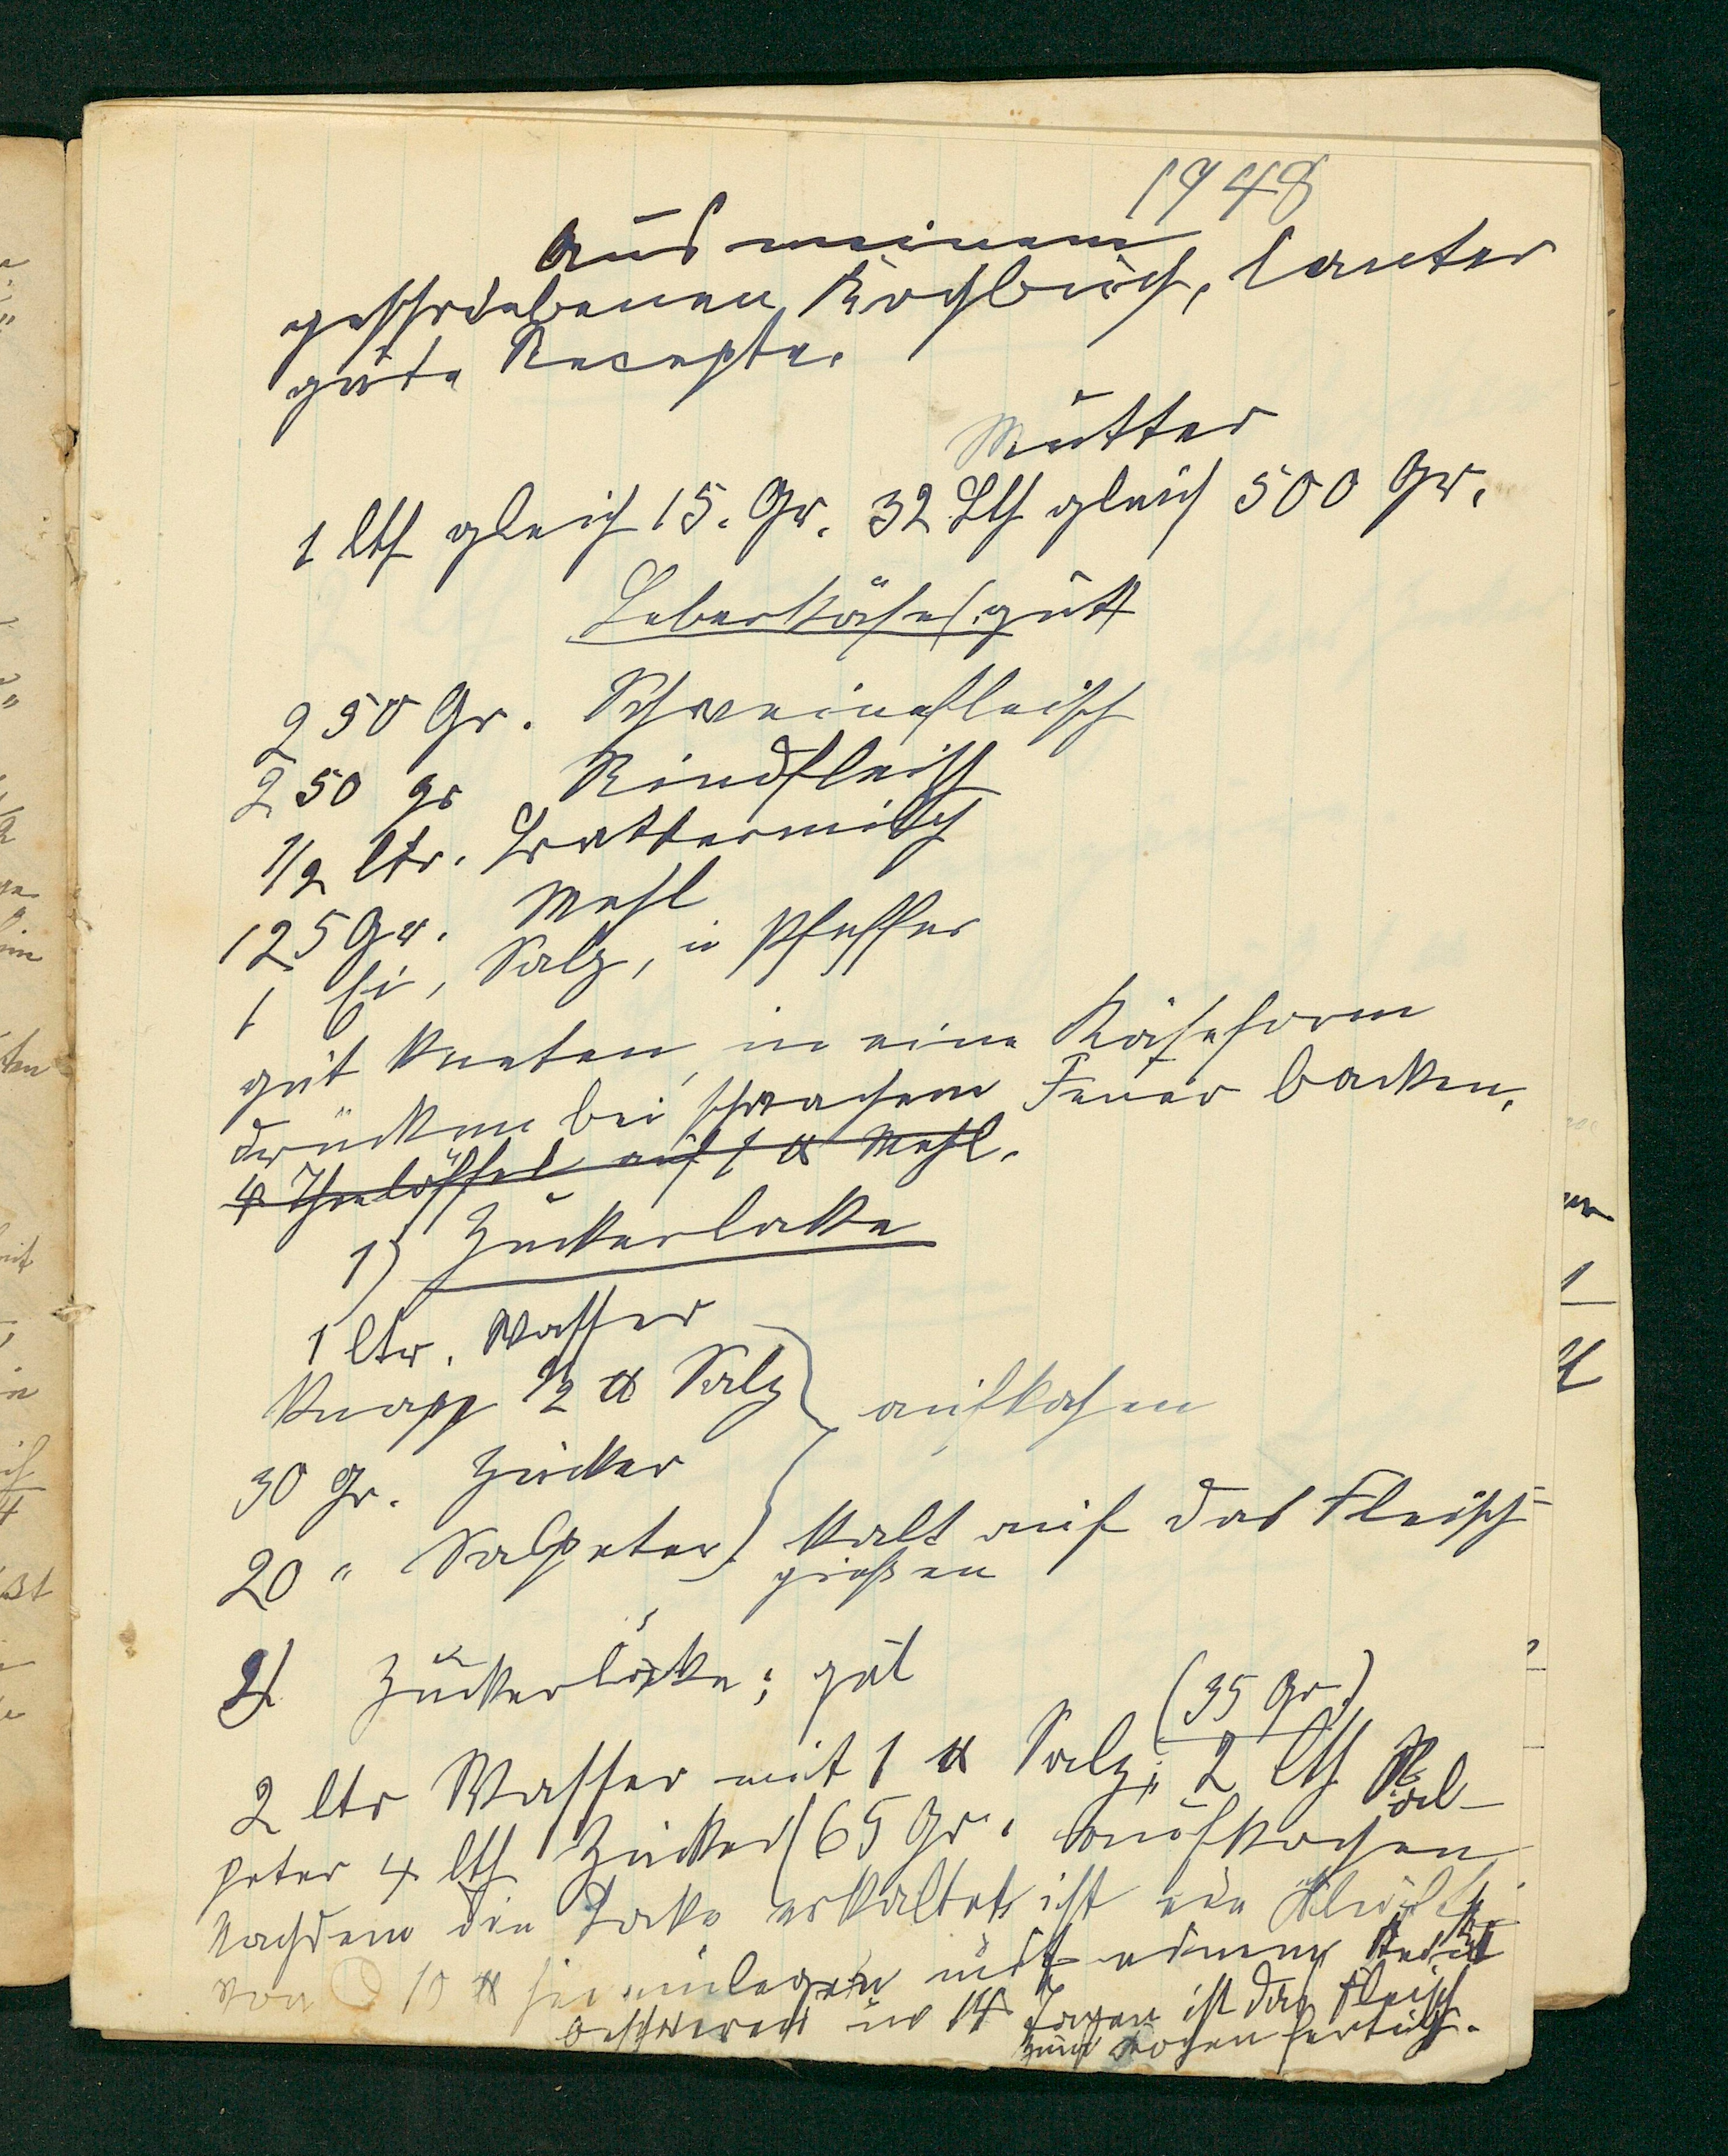 1948
Aus meinem
geschriebenen Kochbuch, lauter
gute Recepte.
Mutter
1 lth gleich 15. Gr. 32 Lth gleich 500 Gr.
Leberkäse (gut)
250 Gr. Schweinefleisch
250 gr Rindfleisch
1/2 ltr. Buttermilch
125 Gr. Mehl
1 Ei, Salz, u Pfeffer
gut kneten, in eine Käseform
drücken bei schwachem Feuer backen.
4 Theelöffel auf 1 ℔ Mehl.
1) Zuckerlake
1 ltr. Wasser
Knapp 1/2 ℔ Salz
aufkochen
30 Gr. Zucker
20 " Salpeter) kalt auf das Fleisch
gießen
2) Zuckerlake; gut
(35 Gr.)
2 ltr Wasser mit 1 ℔ Salz; 2 lth Sal-
peter 4 lth Zucker (65 Gr. aufkochen
Nachdem die Lake erkaltet ist ein
von 10 ℔ hineinlegen mit einem
beschweren in 14 Tagen ist das Fleisch
zum kochen fertig.